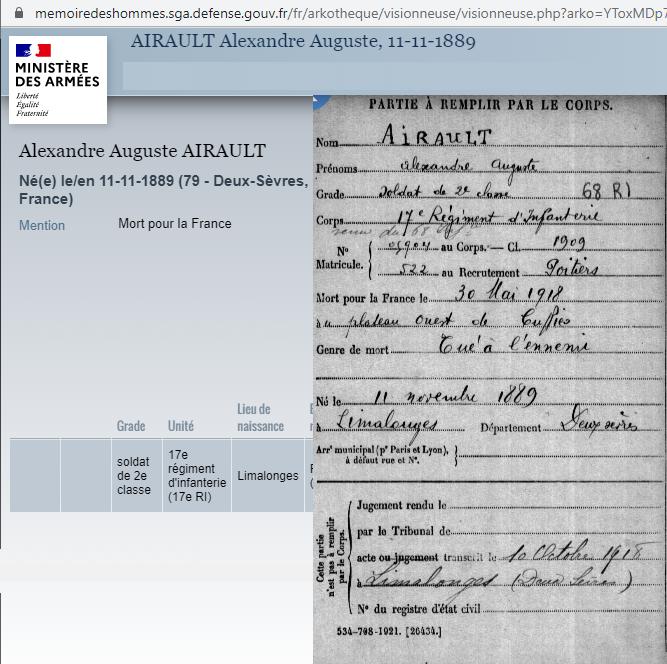 memoiredeshommes.sga.defense.gouv.fr/fr/arkotheque/visionneuse/visionneuse.php?arko=YToxMDp7
AIRAULT Alexandre Auguste, 11-11-1889
MINISTÈRE
DES ARMÉES
Liberté
Égalité
Fraternité
Alexandre Auguste AIRAULT
Né(e) le/en 11-11-1889 (79 - Deux-Sèvres,
France)
Mention Mort pour la France
Grade Unité Lieu de naissance
soldat de 2e classe 17e régiment d'infanterie (17e RI) Limalonges
PARTIE À REMPLIR PAR LE CORPS.
Nom AIRAULT
Prénoms Alexandre Auguste
Grade Soldat de 2e classe 68 RI
Corps 17e Régiment d'Infanterie
venu du 68
N° Matricule. au Corps. — Cl. 1909
522 au Recrutement Poitiers
Mort pour la France le 30 Mai 1918
à au plateau ouest de Cuffies
Genre de mort Tué à l'ennemi
Né le 11 novembre 1889
à Limalonges Département Deux sèvres
Arr^t municipal (p^r Paris et Lyon),
à défaut rue et N°.
Cette partie
n'est pas à remplir
par le Corps.
Jugement rendu le
par le Tribunal de
acte ou jugement transcrit le 10 Octobre 1918
à Limalonges (Deux Sèvres)
N° du registre d'état civil
534-708-1921. [26434.]